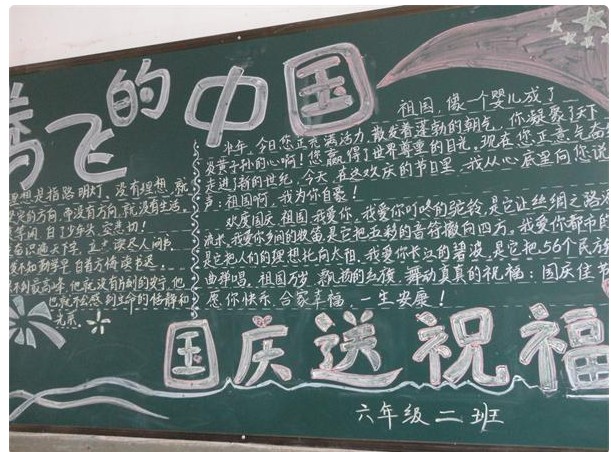 腾飞的中国
理想是指路明灯，没有理想，就
定的方向，而没有方向，就没有生活。
等闲，白了少年头，空悲切！
奋识遍天下字，立志读尽人间书。
发不知勤学早，白首方悔读书迟。
不到最高峰，他就没有片刻的安宁，他
也就不会感到生命的恬静和
光荣。
祖国，像一个婴儿成了
少年，今日您正充满活力，散发着蓬勃的朝气，你凝聚了天下
炎黄子孙的心啊！您赢得了世界尊重的目光，现在您正意气
走进了新的世纪，今天，在这欢庆的节日里，我从心底里向您说
声：祖国啊，我为你自豪！
欢度国庆，祖国我爱你，我爱你叮咚的驼铃，是它让丝绸之路
流水，我爱你乡间的牧笛，是它把五彩的音符撒向四方，我爱你都市的
是它把人们的理想托向太阳，我爱你长江的碧波，是它把56个民族
曲弹唱，祖国万岁，飘扬的红旗，舞动真真的祝福：国庆佳节
愿你快乐，合家幸福，一生安康！
国庆送祝福
六年级二班